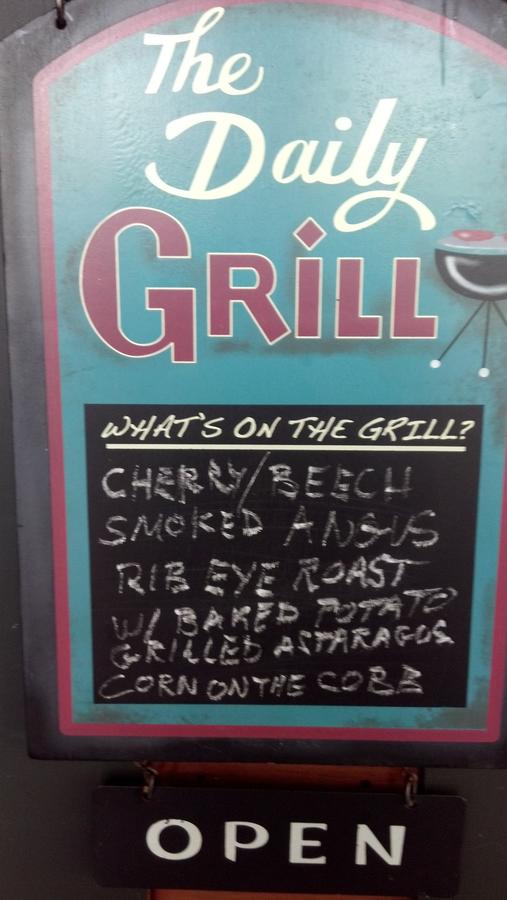 The
Daily
GRiLL
WHAT'S ON THE GRILL?
CHERRY/BEECH
SMOKED ANGUS
RIB EYE ROAST
W/ BAKED POTATO
GRILLED ASPARAGUS
CORN ON THE COBB
OPEN